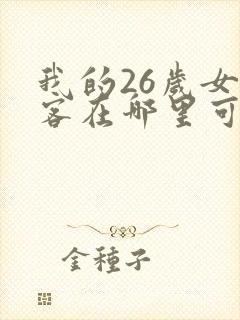 我的26歲女
客在哪里可
金種子